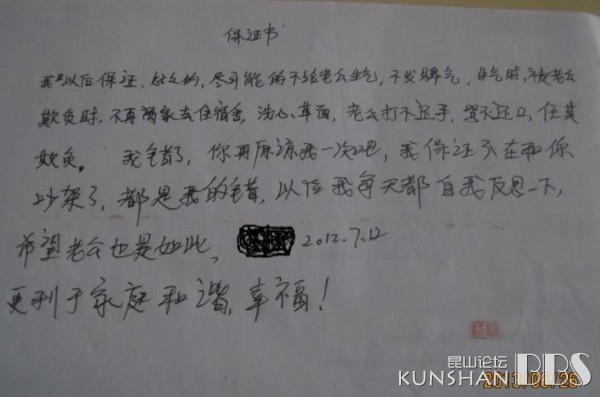 保证书
我以后保证,尽可能的不给老公生气,不发脾气,生气时,被老公
欺负时,不再离家去住宿舍,洗心革面,老公打不还手,骂不还口,任其
欺负。我错了,你再原谅我一次吧,我保证不在和你
吵架了,都是我的错,以后我每天都自我反思一下,
希望老公也是如此, 2012.7.12
更利于家庭和谐,幸福!
昆山论坛
KUNSHAN BBS
2013/06/26